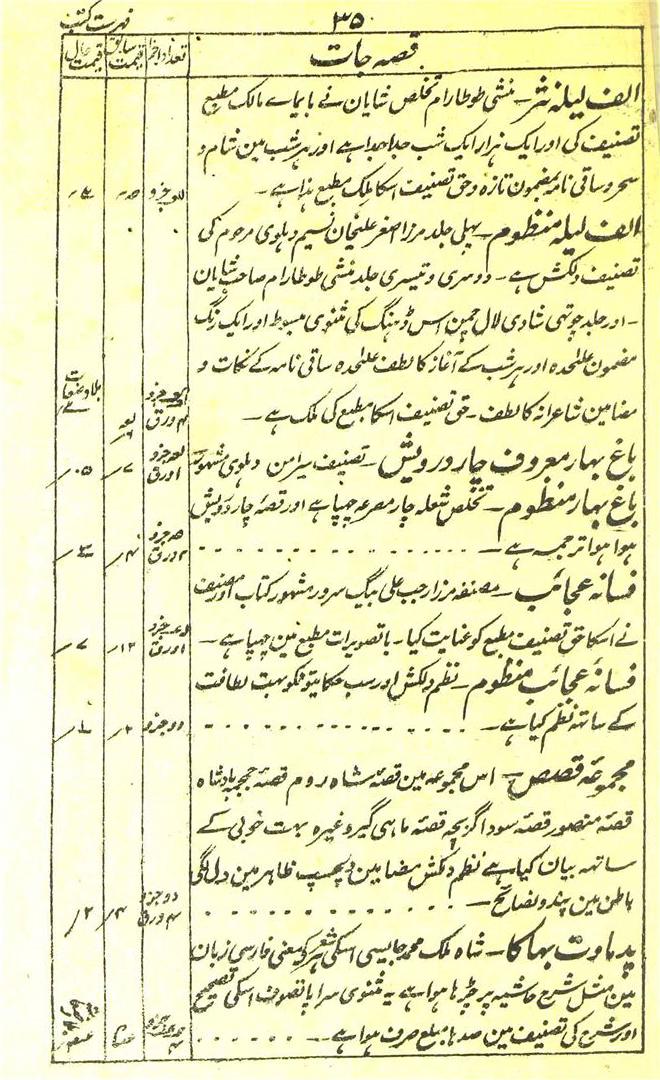 فہرست کتب
۳۵
قصہ جات
تعداد اجزا
قیمت سابق
قیمت حال
الف لیلہ نثر۔ منشی طوطارام تخلص شایان نے بایماے مالک مطبع
تصنیف کی اور ایک ہزار ایک شب جدا جدا ہے اور ہر شب مین شام و
سحر و ساقی نامہ بمضمون تازہ و حق تصنیف اسکا ملک مطبع ہذا ہے۔
الف لیلہ منظوم۔ پہلی جلد مرزا اصغر علیخان نسیم دہلوی مرحوم کی
تصنیف دلکش ہے۔ دوسری و تیسری جلد منشی طوطارام صاحب شایان
۔اور جلد چوتھی شادی لال چمن اس ڈہنگ کی مثنوی مبسوط اور ایک رنگ
مضمون علٰحدہ اور ہر شب کے آغاز کا لطف علٰحدہ ساقی نامہ کے نکات و
مضامین شاعرانہ کا لطف۔ حق تصنیف اسکا مطبع کی ملک ہے۔
باغ بہار معروف چار درویش۔ تصنیف میرامن دہلوی مشہور ہے
باغ بہار منظوم۔ تخلص شعلہ چار مصرعہ چھپا ہے اور قصۂ چار درویش
ہوا ہوا ترجمہ ہے۔
فسانہ عجائب۔ مصنفہ مرزا رجب علی بیگ سرور مشہور کتاب اور مصنف
نے اسکا حق تصنیف مطبع کو عنایت کیا۔ با تصویرات مطبع مین چھپا ہے۔
فسانۂ عجائب منظوم۔ نظم دلکش اور سب حکایتونکو بہت لطافت
کے ساتھ نظم کیا ہے۔
دو جزو
مجموعۂ قصص۔ اس مجموعہ مین قصۂ شاہ روم قصۂ جمجمہ بادشاہ
قصہ منصور قصہ سوداگر بچہ قصۂ ماہی گیر وغیرہ بہت خوبی کے
ساتھ بیان کیا ہے نظم دلکش مضامین دلچسپ ظاہر مین دل لگی
باطن مین پند و نصائح۔
دو جزو
۴ ورق
۴؍
۲؍
پدماوت بہاکا۔ شاہ ملک محمد جایسی اسکی ہر شعر کو معنی فارسی زبان
مین مثل شرح حاشیہ پر چڑہا ہوا ہے یہ مثنوی سراپا تصوف اسکی تصحیح
اور شرح کی تصنیف مین صدہا مبلغ صرف ہوا ہے۔